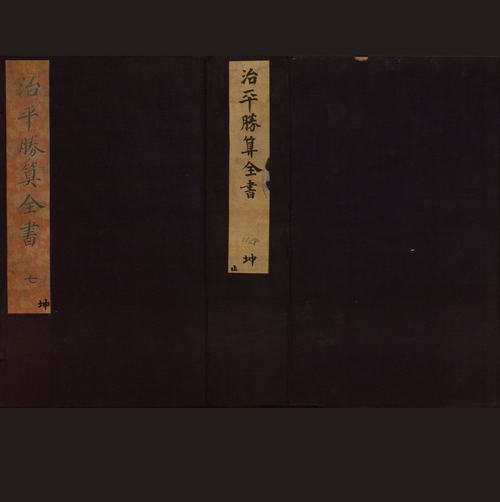 治平勝算全書
七
坤
治平勝算全書
坤
止